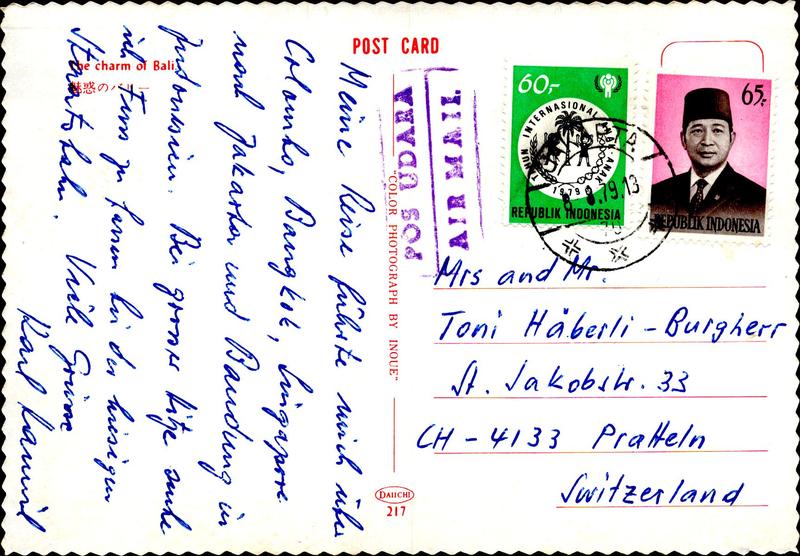 POST CARD
The charm of Bali
魅惑のバリー
Meine Reise führte mich über
Colombo, Bangkok, Singapore
nach Jakarta und Bandung in
Indonesien. Bei grosser Hitze suche
ich Fuss zu fassen bei der hiesigen
Viele Grüsse
Karl
POS UDARA
AIR MAIL
"COLOR PHOTOGRAPH BY INOUE"
DAIICHI
217
60,-
TAHUN INTERNASIONAL ANAK-ANAK
1979
REPUBLIK INDONESIA
65,-
REPUBLIK INDONESIA
8.79.13
Mrs and Mr.
Toni Häberli-Burgherr
St. Jakobstr. 33
CH-4133 Pratteln
Switzerland